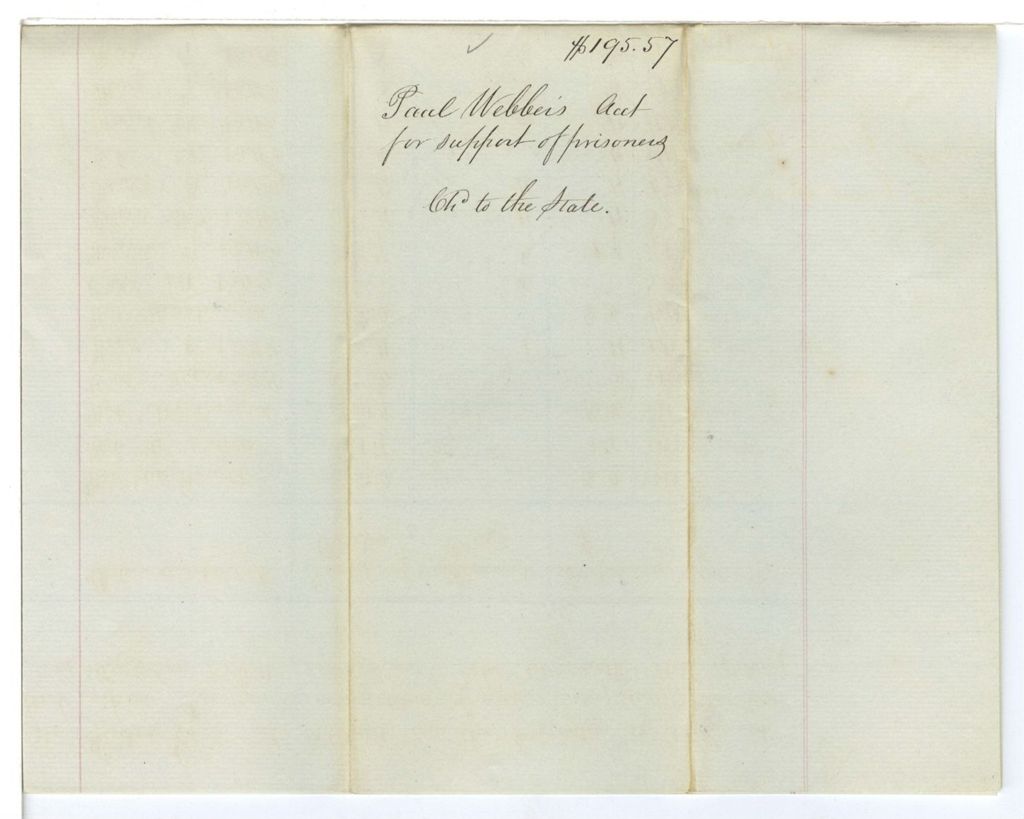 $195.57
Paul Webber's Acct
for support of prisoners
Chd to the State.